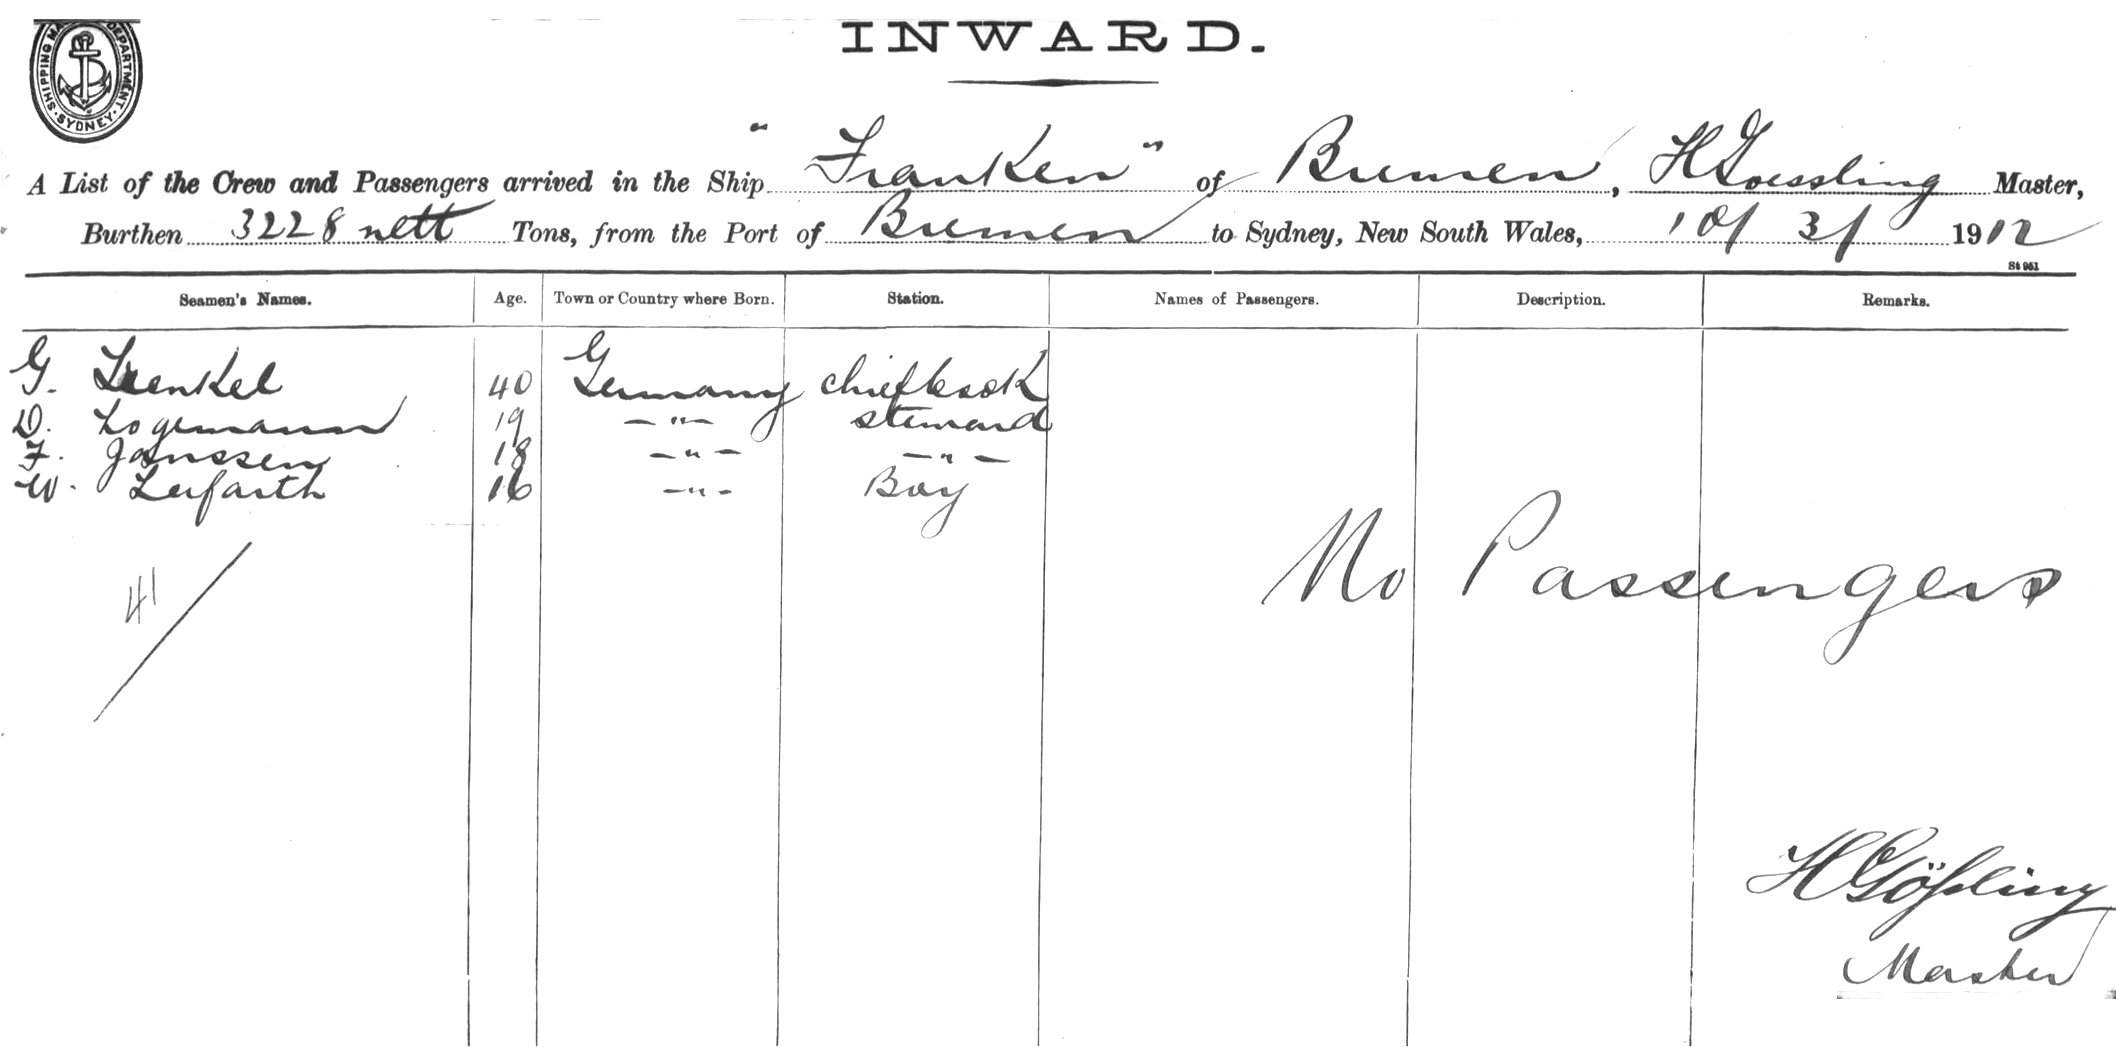 INWARD.
SHIPPING MA DEPARTMENT. SYDNEY
A List of the Crew and Passengers arrived in the Ship "Franken" of Bremen, H Goessling Master,
Burthen 3228 nett Tons, from the Port of Bremen to Sydney, New South Wales, 10/3/ 1912
St 961
Seamen's Names. Age. Town or Country where Born. Station. Names of Passengers. Description. Remarks.
G. 40 Germany chiefcook
D. Logemann 19 -"- steward
F. Janssen 18 -"- -"-
W. Leifarth 16 -"- Boy
No Passengers
41
H Gößling
Master